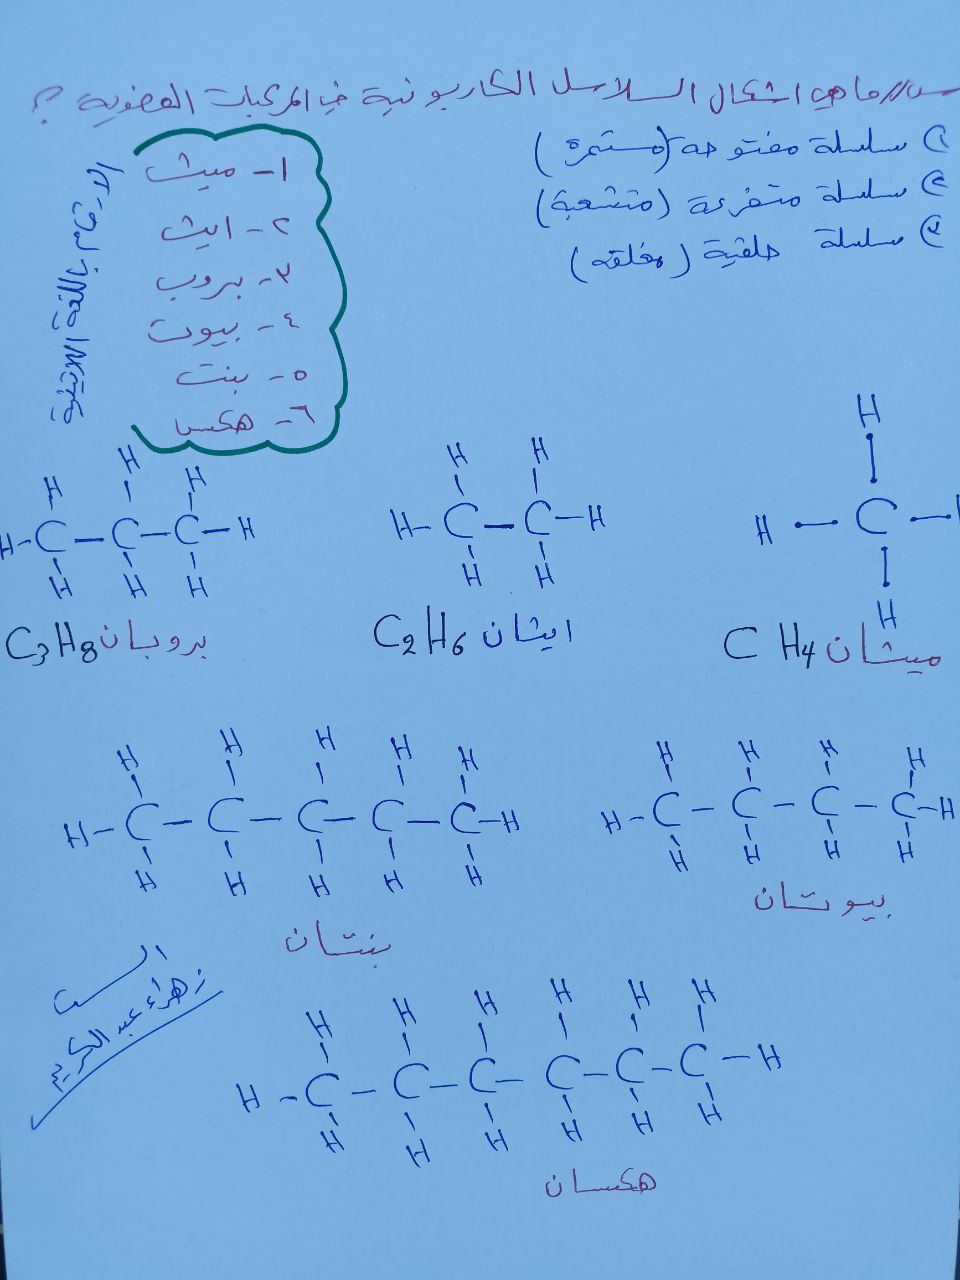 س// ما هي اشكال السلاسل الكاربونية في المركبات العضوية ؟
١) سلسلة مفتوحه (مستمرة)
٢) سلسلة متفرعة (متشعبة)
٣) سلسلة حلقية (مغلقه)
الارقام باللغة اللاتينية
١- ميث
٢- ايث
٣- بروب
٤- بيوت
٥- بنت
٦- هكسا
H
H - C - H
H
ميثان CH4
H H
H - C - C - H
H H
ايثان C2H6
H H H
H - C - C - C - H
H H H
بروبان C3H8
H H H H
H - C - C - C - C - H
H H H H
بيوتان
H H H H H
H - C - C - C - C - C - H
H H H H H
بنتان
H H H H H H
H - C - C - C - C - C - C - H
H H H H H H
هكسان
الست
زهراء عبد الكريم